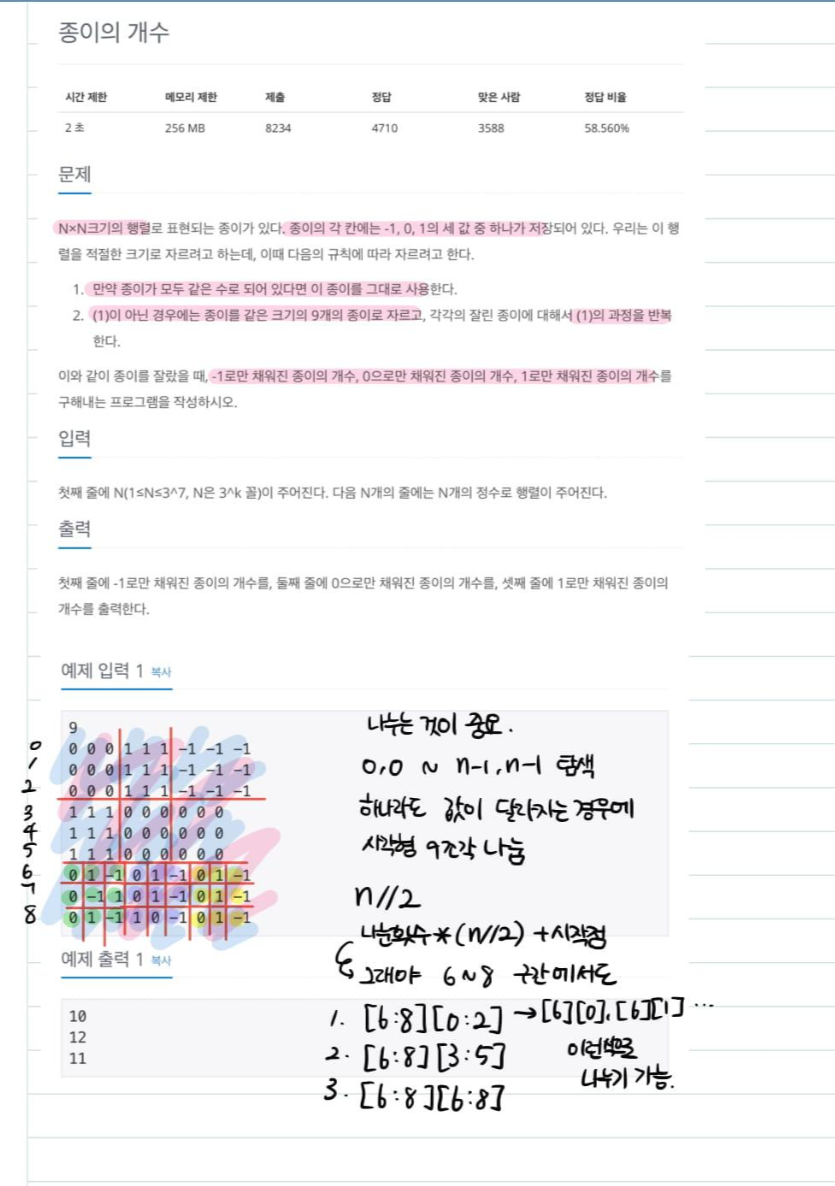 종이의 개수
시간 제한 메모리 제한 제출 정답 맞은 사람 정답 비율
2 초 256 MB 8234 4710 3588 58.560%
문제
N×N크기의 행렬로 표현되는 종이가 있다. 종이의 각 칸에는 -1, 0, 1의 세 값 중 하나가 저장되어 있다. 우리는 이 행
렬을 적절한 크기로 자르려고 하는데, 이때 다음의 규칙에 따라 자르려고 한다.
1. 만약 종이가 모두 같은 수로 되어 있다면 이 종이를 그대로 사용한다.
2. (1)이 아닌 경우에는 종이를 같은 크기의 9개의 종이로 자르고, 각각의 잘린 종이에 대해서 (1)의 과정을 반복
한다.
이와 같이 종이를 잘랐을 때, -1로만 채워진 종이의 개수, 0으로만 채워진 종이의 개수, 1로만 채워진 종이의 개수를
구해내는 프로그램을 작성하시오.
입력
첫째 줄에 N(1≤N≤3^7, N은 3^k 꼴)이 주어진다. 다음 N개의 줄에는 N개의 정수로 행렬이 주어진다.
출력
첫째 줄에 -1로만 채워진 종이의 개수를, 둘째 줄에 0으로만 채워진 종이의 개수를, 셋째 줄에 1로만 채워진 종이의
개수를 출력한다.
예제 입력 1 복사
9
0 0 0 0 1 1 1 -1 -1 -1
1 0 0 0 1 1 1 -1 -1 -1
2 0 0 0 1 1 1 -1 -1 -1
3 1 1 1 0 0 0 0 0 0
4 1 1 1 0 0 0 0 0 0
5 1 1 1 0 0 0 0 0 0
6 0 1 -1 0 1 -1 0 1 -1
7 0 -1 1 0 1 -1 0 1 -1
8 0 1 -1 1 0 -1 0 1 -1
나누는 것이 중요.
0,0 ~ n-1, n-1 탐색
하나라도 값이 달라지는 경우에
사각형 9조각 나눔
n//2
나눈횟수*(n//2) + 시작점
그래야 6~8 구간에서도
1. [6:8][0:2] → [6][0], [6][1] ...
2. [6:8][3:5] 이런식으로
3. [6:8][6:8] 나누기 가능.
예제 출력 1 복사
10
12
11